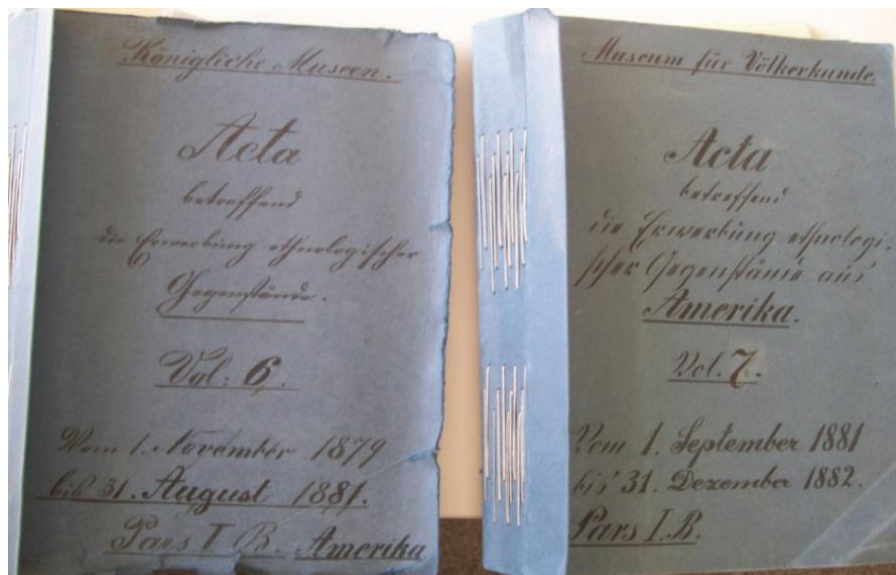 Königliche Museen.
Acta
betreffend
die Erwerbung ethnologischer
Gegenstände.
Vol: 6.
Vom 1. November 1879
bis 31. August 1881.
Pars I B. Amerika
Museum für Völkerkunde.
Acta
betreffend
die Erwerbung ethnologi-
scher Gegenstände aus
Amerika.
Vol. 7.
Vom 1. September 1881
bis 31. Dezember 1882.
Pars I. B.